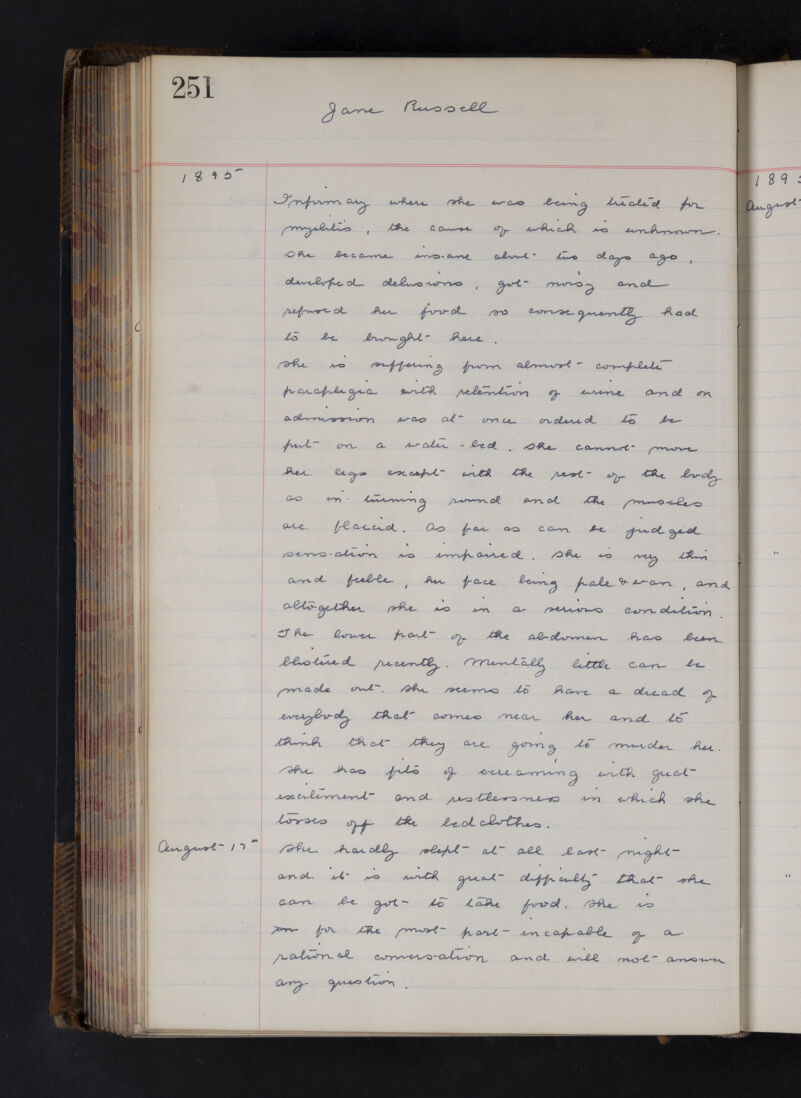 251
Jane Russell
1895
Infirmary where she was being treated for
myelitis, the cause of which is unknown.
She became insane about two days ago,
developed delusions, got noisy and
refused her food so consequently had
to be brought here.
She is suffering from almost complete
paraplegia with retention of urine and on
admission was at once ordered to be
put on a water-bed. She cannot move
her legs except with the rest of the body
as in turning round and the muscles
are flaccid. As far as can be judged
sensation is impaired. She is very thin
and feeble, her face being pale & wan, and
altogether she is in a serious condition.
The lower part of the abdomen has been
blistered recently. Mentally little can be
made out. She seems to have a dread of
everybody that comes near her and to
think that they are going to murder her.
She has fits of screaming with great
excitement and restlessness in which she
tosses off the bedclothes.
August 17th She hardly slept at all last night
and it is with great difficulty that she
can be got to take food. She is
for the most part incapable of a
rational conversation and will not answer
any question.
189
August
"
"